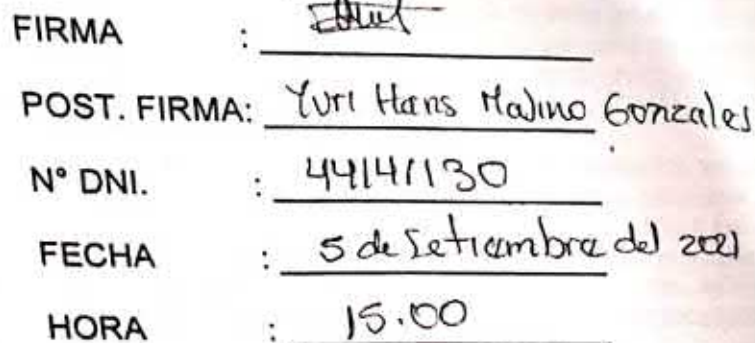 FIRMA :
POST. FIRMA: Yuri Hans Malino Gonzales
N° DNI. : 44141130
FECHA : 5 de Setiembre del 2021
HORA : 15.00